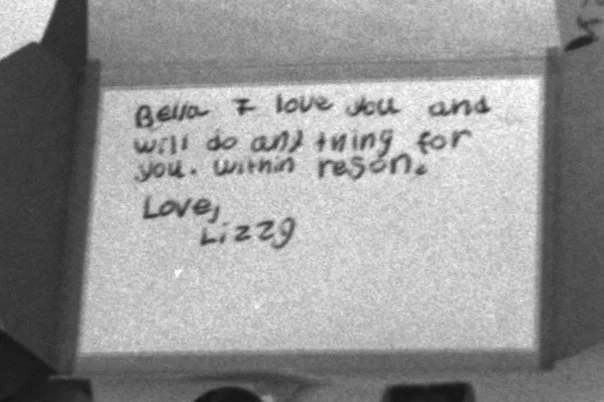 Bella I love you and
will do any thing for
you. within reson.
Love,
Lizzy